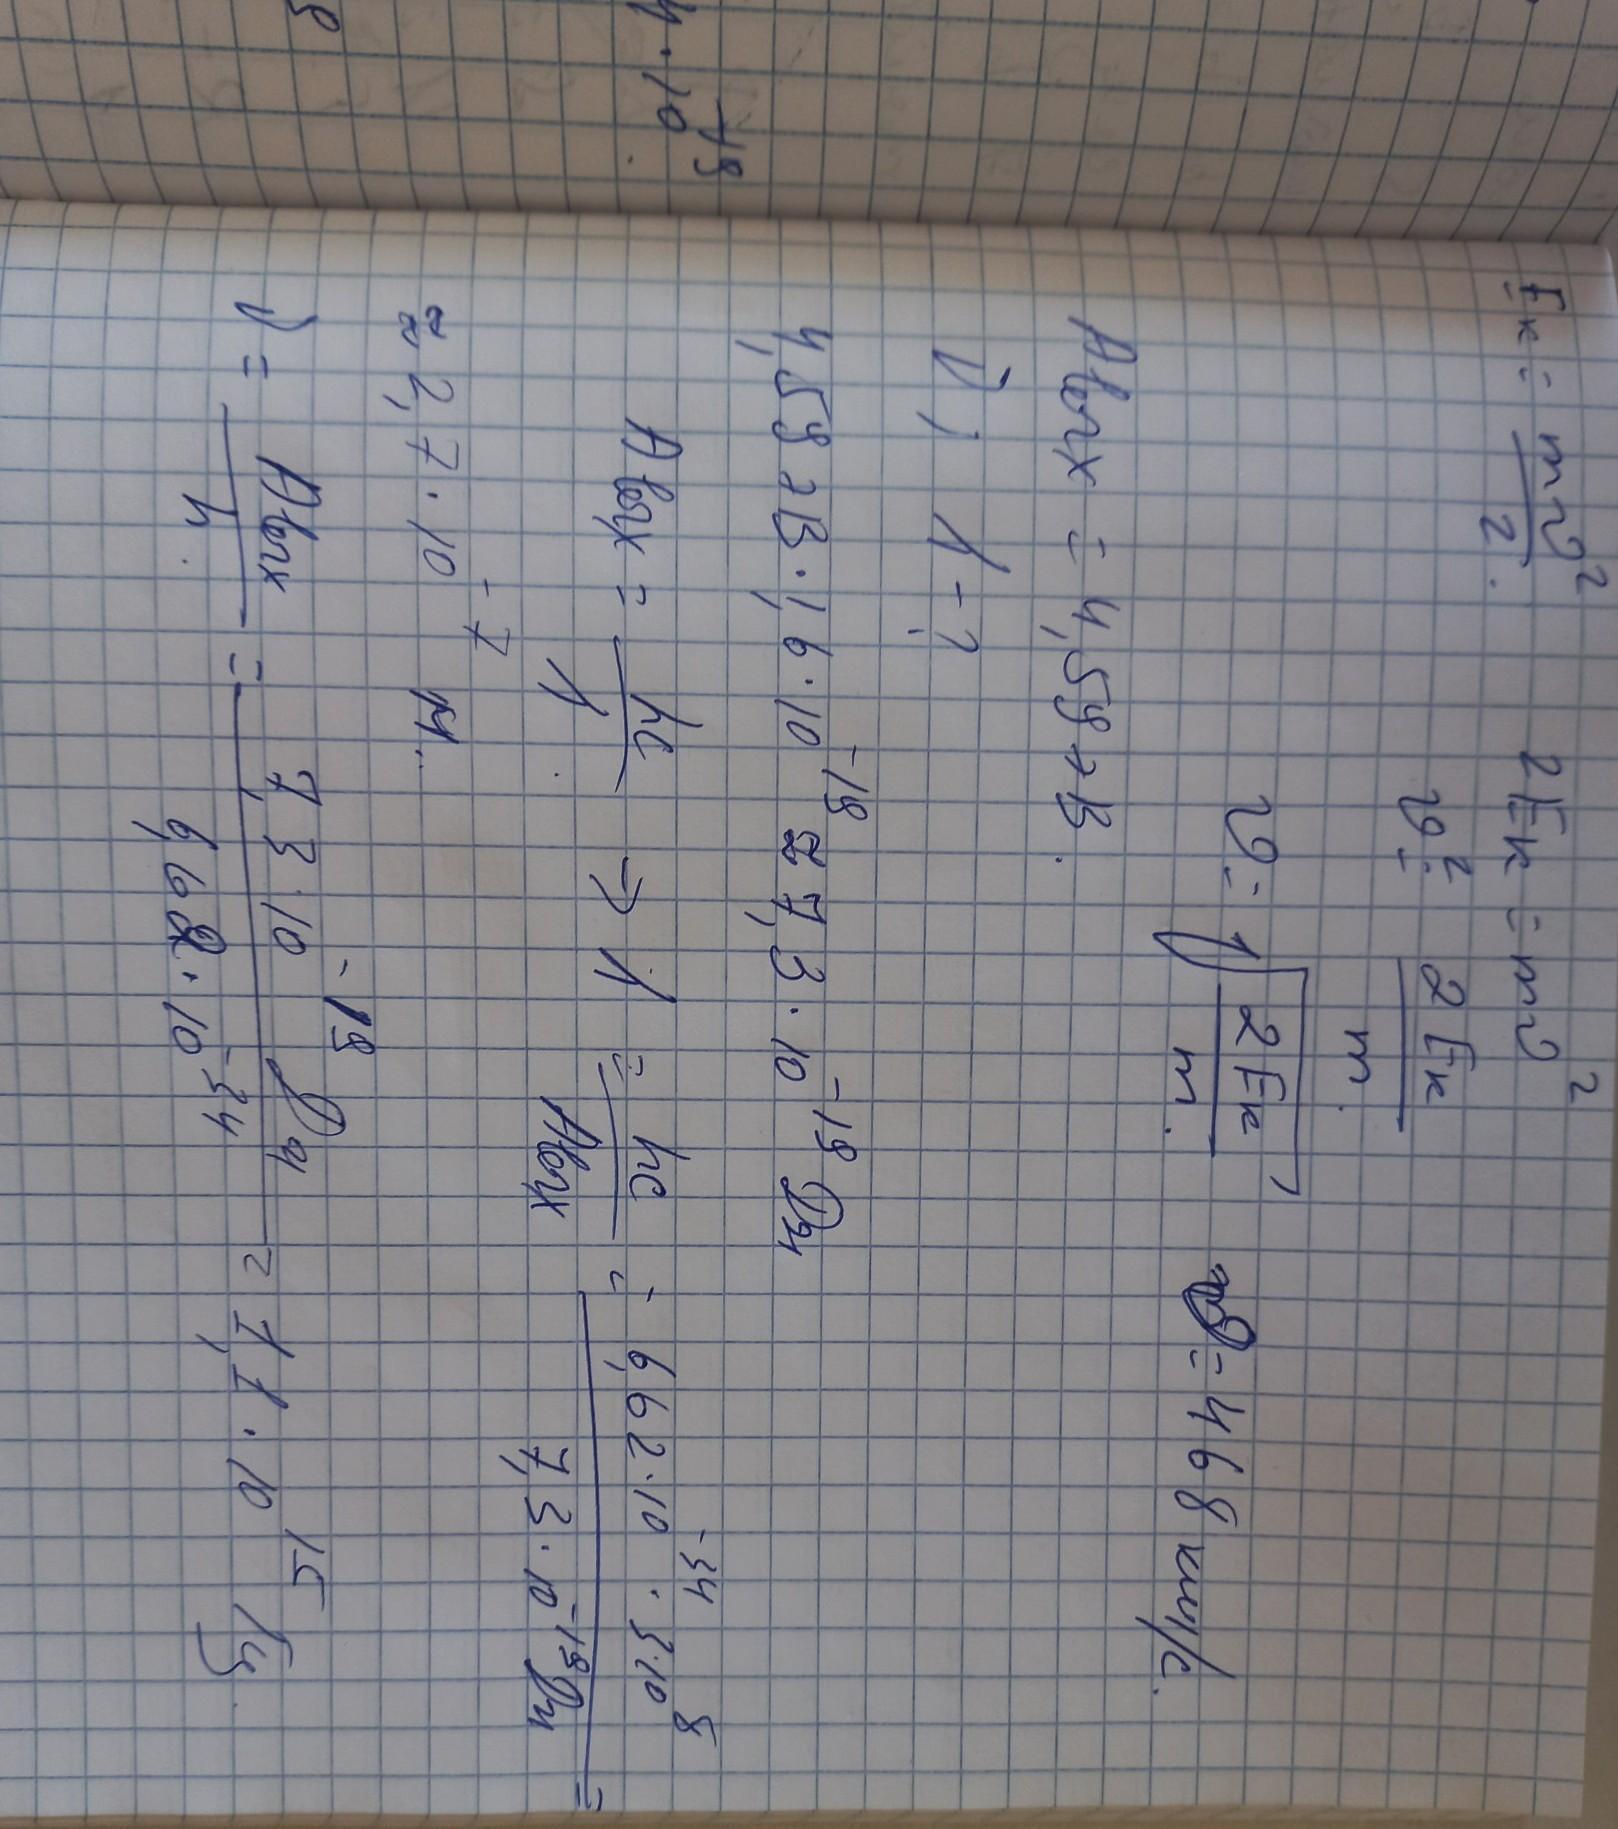 4 · 10⁻¹⁹.
Eк = mv²/2. 2Eк = mv²
v² = 2Eк/m.
v = √(2Eк/m). v = 468 км/с.
Авых = 4,59 эВ.
ν; λ - ?
4,59 эВ · 1,6 · 10⁻¹⁹ ≈ 7,3 · 10⁻¹⁹ Дж
Авых = hc/λ. → λ = hc/Авых = 6,62 · 10⁻³⁴ · 3 · 10⁸ / 7,3 · 10⁻¹⁹ Дж =
≈ 2,7 · 10⁻⁷ м.
ν = Авых/h. = 7,3 · 10⁻¹⁹ Дж / 6,62 · 10⁻³⁴ = 1,1 · 10¹⁵ Гц.